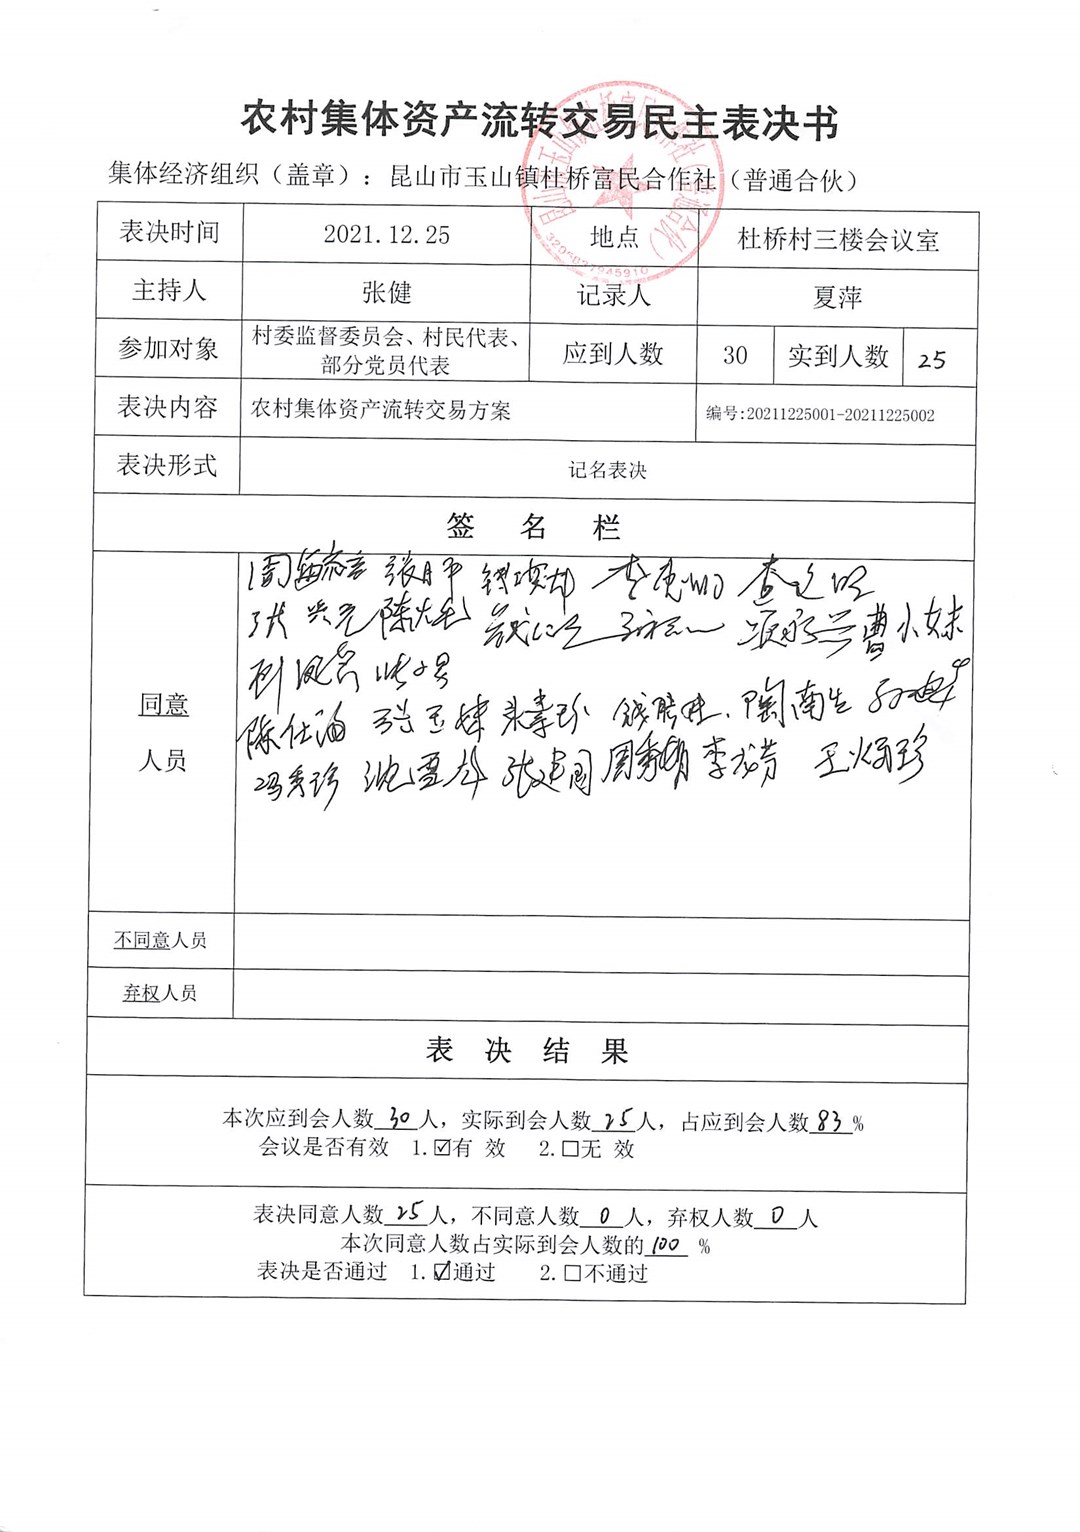 农村集体资产流转交易民主表决书
集体经济组织（盖章）：昆山市玉山镇杜桥富民合作社（普通合伙）
表决时间 2021.12.25 地点 杜桥村三楼会议室
主持人 张健 记录人 夏萍
参加对象 村委监督委员会、村民代表、部分党员代表 应到人数 30 实到人数 25
表决内容 农村集体资产流转交易方案 编号:20211225001-20211225002
表决形式 记名表决
签 名 栏
同意
人员
陈大毛 曹小妹
陈仕海 陶南生
冯秀珍 张建国 周秀娟 李龙芳
不同意人员
弃权人员
表 决 结 果
本次应到会人数30人，实际到会人数25人，占应到会人数83%
会议是否有效 1.☑有 效 2.□无 效
表决同意人数25人，不同意人数0人，弃权人数0人
本次同意人数占实际到会人数的100 %
表决是否通过 1.☑通过 2.□不通过